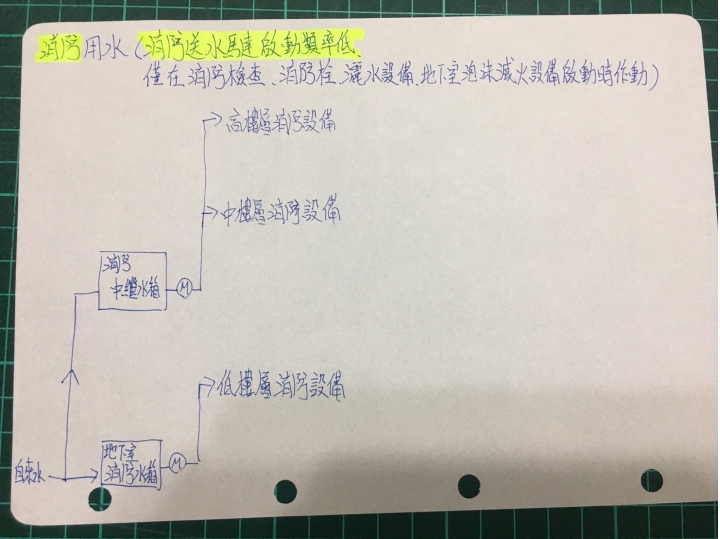 消防用水(消防送水馬達啟動頻率低、
僅在消防檢查、消防栓、灑水設備、地下室泡沫滅火設備啟動時作動)
高樓層消防設備
中樓層消防設備
消防
中繼水箱
M
低樓層消防設備
地下室
消防水箱
M
自來水